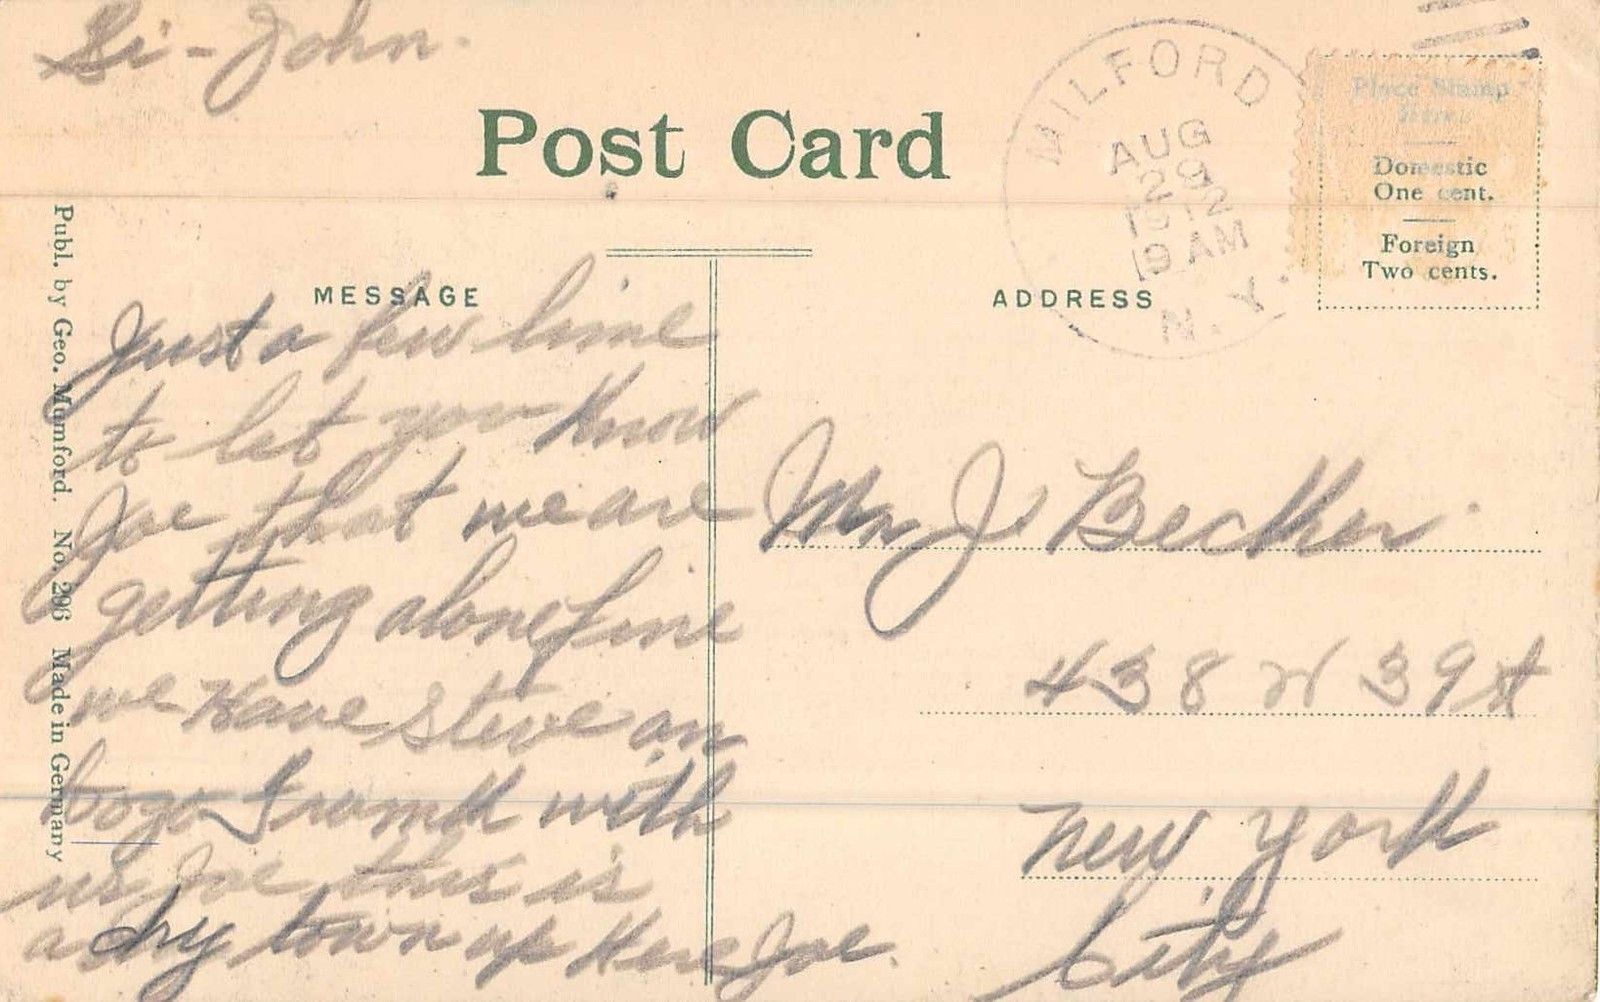 Si - John.
Post Card
MILFORD
N. Y.
AUG
29
1912
9 AM
Place Stamp
Here.
Domestic
One cent.
Foreign
Two cents.
Publ. by Geo. Mumford. No. 296 Made in Germany
MESSAGE
Just a few line
to let you know
Joe that we are
getting along fine
we have Steve an
with
us Joe this is
a dry town up here Joe.
ADDRESS
Mr J Becker
438 W 39 St
New York
City